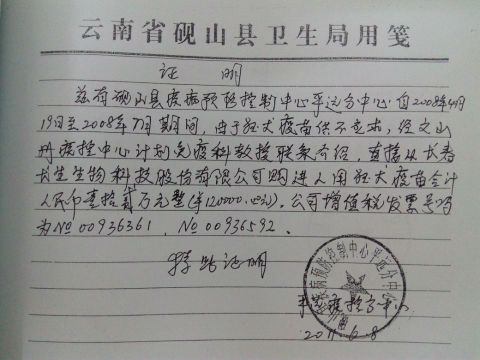 云南省砚山县卫生局用笺
证 明
兹有砚山县疾病预防控制中心平远分中心自2008年4月
19日至2008年7月期间,由于狂犬疫苗供不应求,经文山
州疾控中心计划免疫科教授联系介绍,直接从长春
长生生物科技股份有限公司购进人用狂犬疫苗合计
人民币壹拾贰万元整(¥120000.00元)。公司增值税发票号码
为No 00936361、No 00936592。
特此证明
疾病预防控制中心平远分中心
平远疾控分中心
2011.6.8